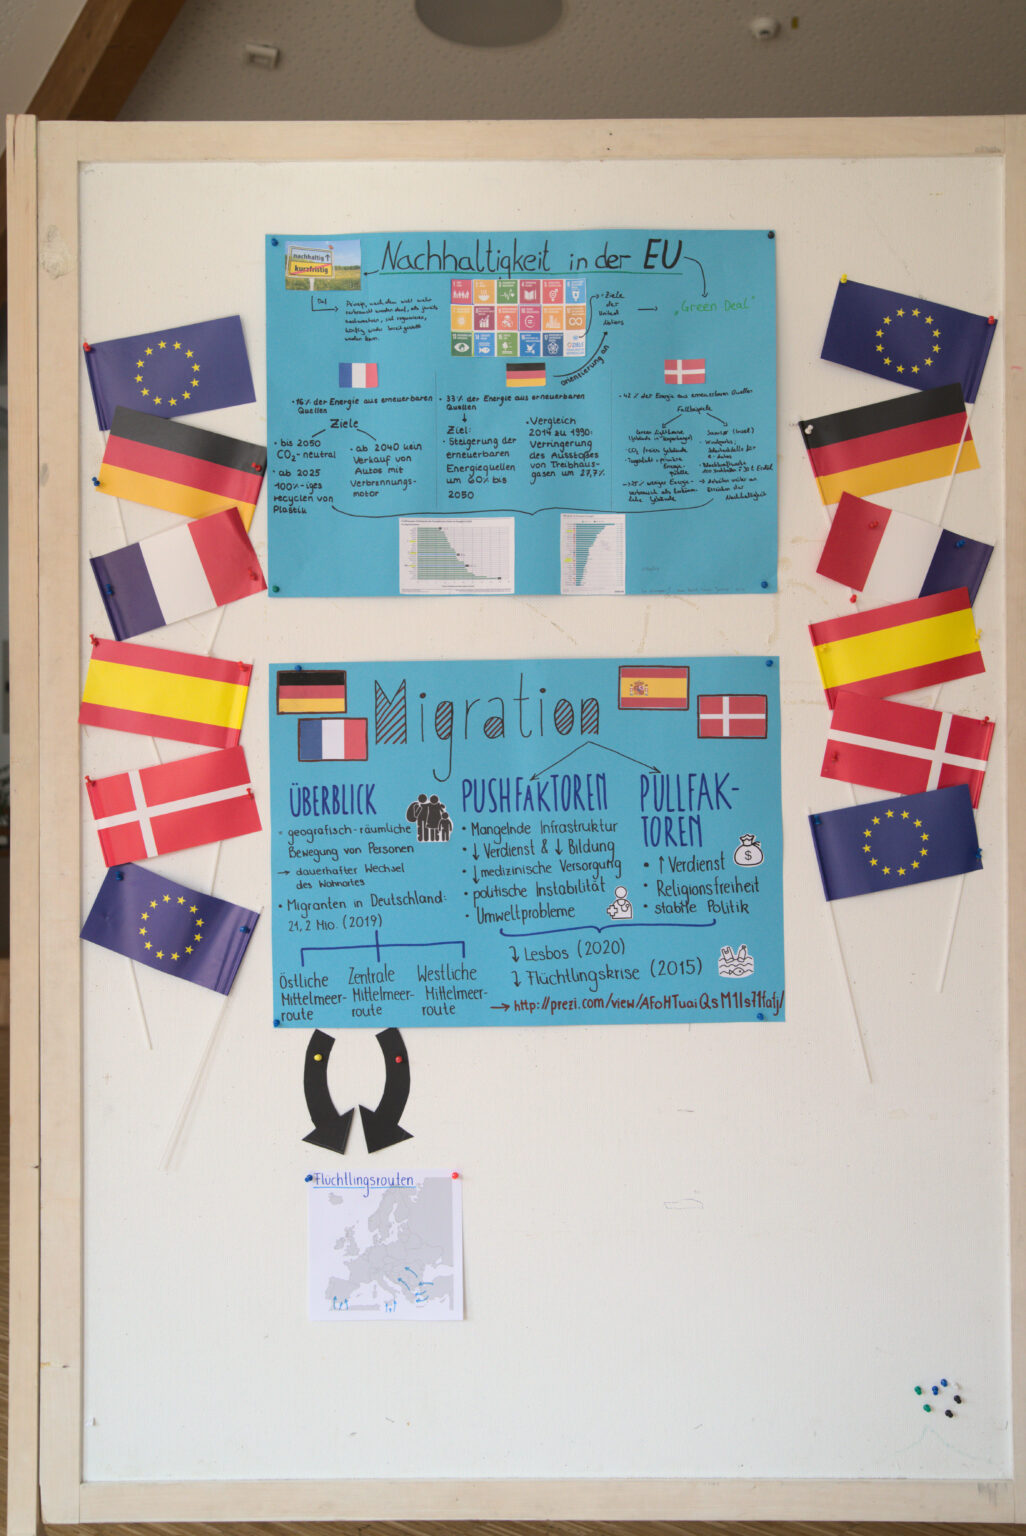 Nachhaltigkeit in der EU
nachhaltig
kurzfristig
Prinzip, nach dem nicht mehr
verbraucht werden darf, als jeweils
nachwachsen, sich regenerieren,
künftig wieder bereitgestellt
werden kann.
Ziele
der
United
Nations
orientierung an
"Green Deal"
• 16% der Energie aus erneuerbaren
Quellen
Ziele
• bis 2050
CO₂-neutral
• ab 2025
100%-iges
recyclen von
Plastik
• ab 2040 kein
Verkauf von
Autos mit
Verbrennungs-
motor
• 33% der Energie aus erneuerbaren
Quellen
Ziel:
• Steigerung der
erneuerbaren
Energiequellen
um 60% bis
2050
• Vergleich
2014 zu 1990:
Verringerung
des Ausstoßes
von Treibhaus-
gasen um 27,7%
• 42% der Energie aus erneuerbaren Quellen
Fallbeispiele
Green Lighthouse
• CO₂ freies Gebäude
Samsø (Insel)
• Windparks,
Nachhaltigkeit
Migration
ÜBERBLICK
• geografisch-räumliche
Bewegung von Personen
→ dauerhafter Wechsel
des Wohnortes
• Migranten in Deutschland:
21,2 Mio. (2019)
Östliche
Mittelmeer-
route
Zentrale
Mittelmeer-
route
Westliche
Mittelmeer-
route
PUSHFAKTOREN
• Mangelnde Infrastruktur
• ↓ Verdienst & ↓ Bildung
• ↓ medizinische Versorgung
• politische Instabilität
• Umweltprobleme
PULLFAK-
TOREN
• ↑ Verdienst
• Religionsfreiheit
• stabile Politik
$
↴ Lesbos (2020)
↴ Flüchtlingskrise (2015)
→ http://prezi.com/view/AFoHTuaiQsM1ls71fafj/
Flüchtlingsrouten